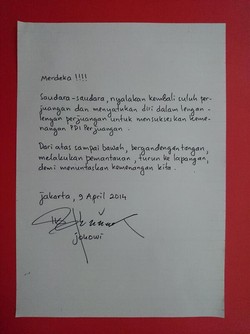 Merdeka !!!!
Saudara-saudara, nyalakan kembali suluh per-
juangan dan menyatukan diri dalam lengan-
lengan perjuangan untuk mensukseskan keme-
nangan PDI Perjuangan.
Dari atas sampai bawah, bergandengan tangan,
melakukan pemantauan, turun ke lapangan,
demi menuntaskan kemenangan kita.
jakarta, 9 April 2014
jokowi